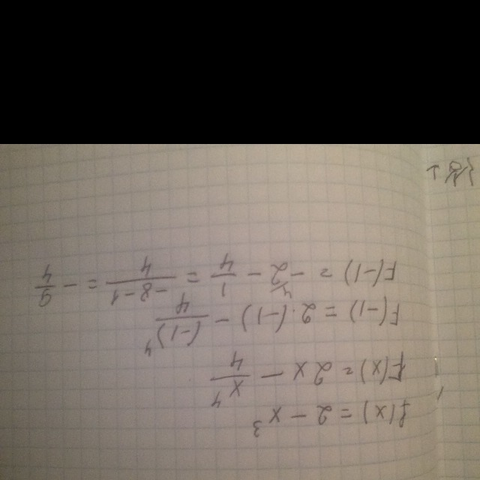 f(x) = 2 - x³
F(x) = 2x - x⁴/4
F(-1) = 2·(-1) - (-1)⁴/4
F(-1) = -2⁴ - 1/4 = -8-1/4 = -9/4